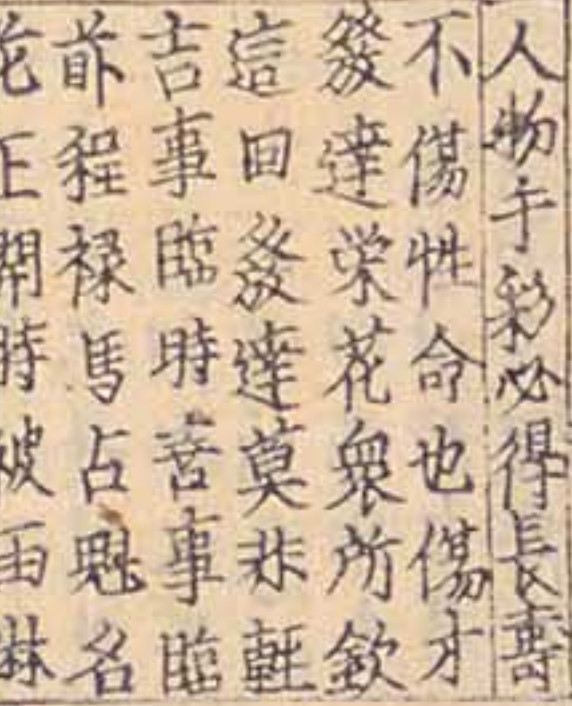 人物于彩必得長壽
不傷性命也傷才
發達栄花衆所欽
這回發達莫非輕
吉事臨時喜事臨
前程祿馬占魁名
花正開時被雨淋